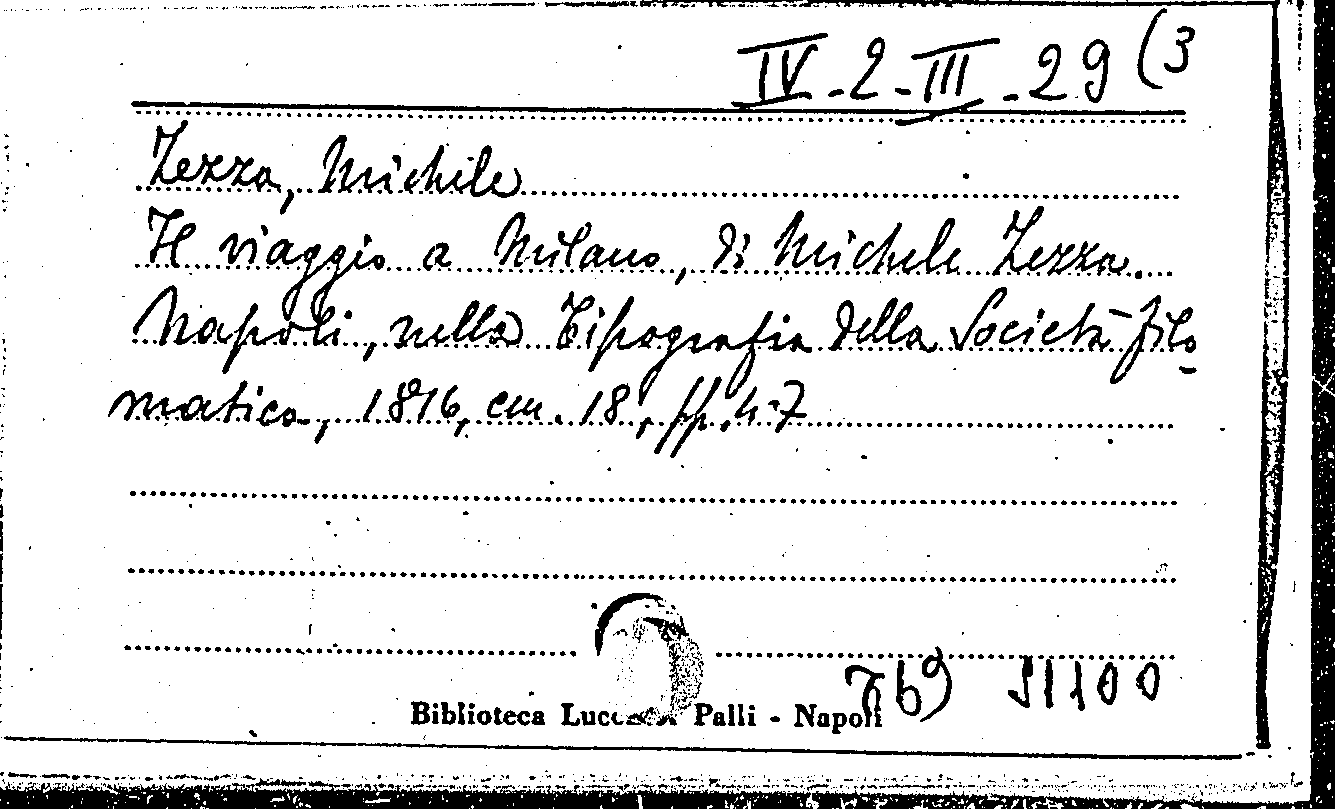 IV-2-III-29(3
Zezza, Michele
Il viaggio a Milano, di Michele Zezza.
Napoli, nella Tipografia della Società filo-
matica, 1816, cm. 18, pp. 4-7
Biblioteca Palli - Napoli